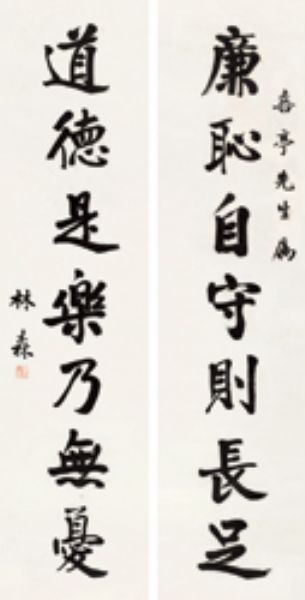 岳亭先生屬
廉恥自守則長足
道德是樂乃無憂
林森